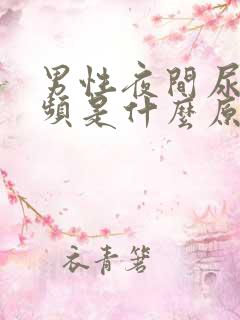 男性夜間尿
頻是什麼原
衣青箬